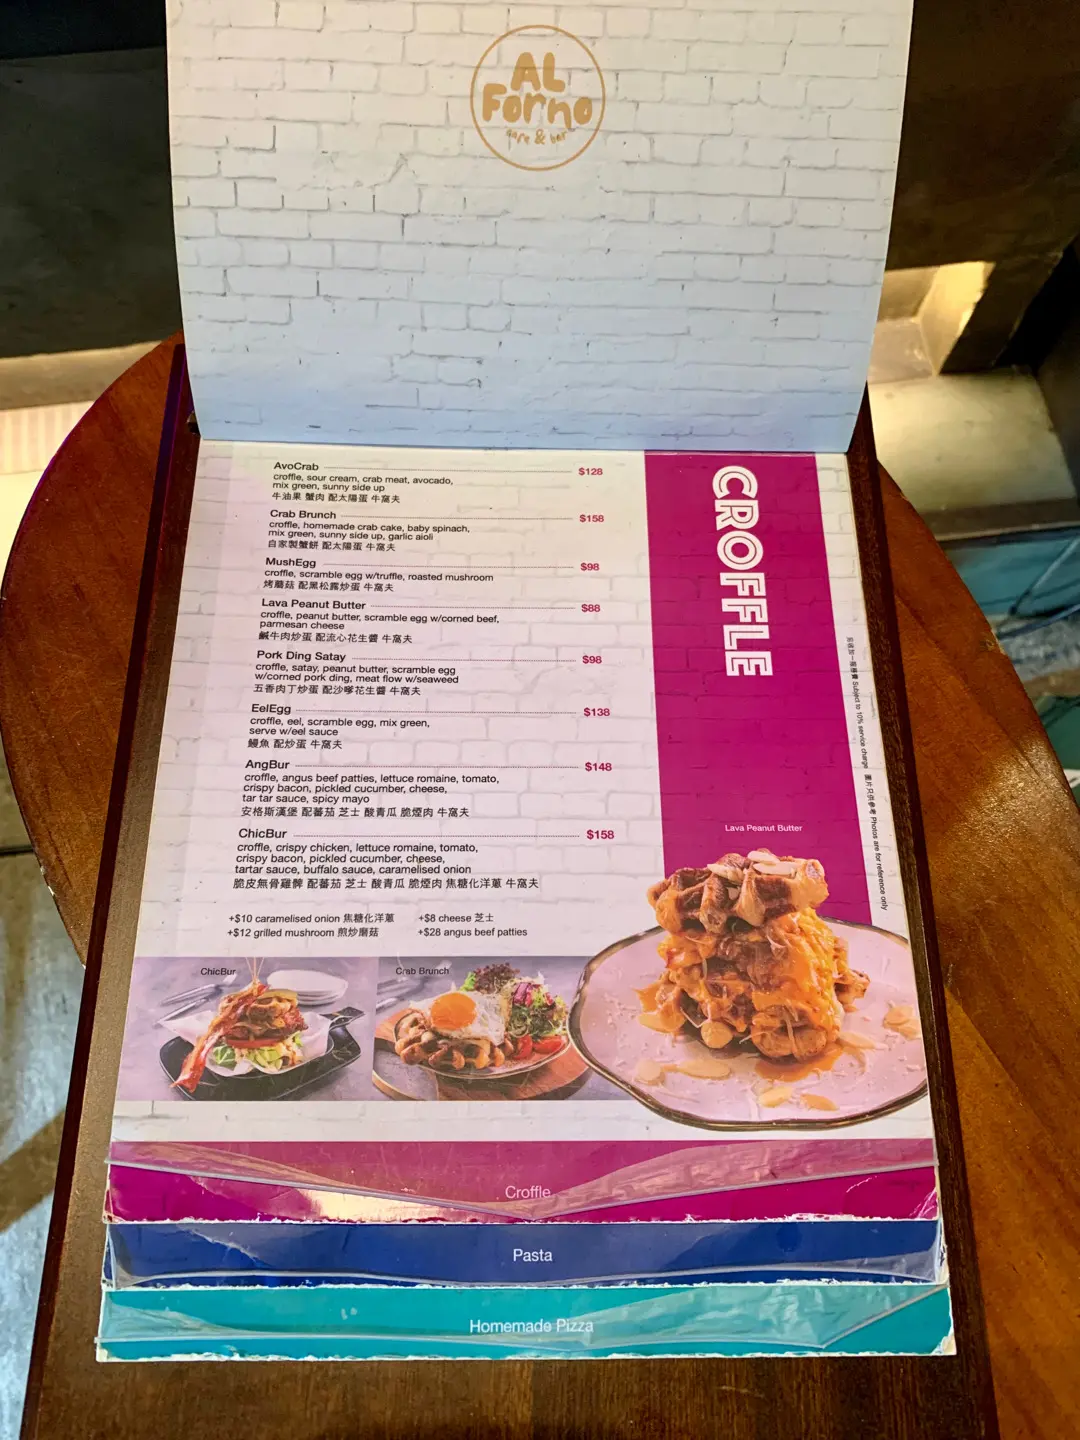 AL
Forno
cafe & bar
CROFFLE
AvoCrab $128
croffle, sour cream, crab meat, avocado,
mix green, sunny side up
牛油果 蟹肉 配太陽蛋 牛窩夫
Crab Brunch $158
croffle, homemade crab cake, baby spinach,
mix green, sunny side up, garlic aioli
自家製蟹餅 配太陽蛋 牛窩夫
MushEgg $98
croffle, scramble egg w/truffle, roasted mushroom
烤蘑菇 配黑松露炒蛋 牛窩夫
Lava Peanut Butter $88
croffle, peanut butter, scramble egg w/corned beef,
parmesan cheese
鹹牛肉炒蛋 配流心花生醬 牛窩夫
Pork Ding Satay $98
croffle, satay, peanut butter, scramble egg
w/corned pork ding, meat flow w/seaweed
五香肉丁炒蛋 配沙嗲花生醬 牛窩夫
EelEgg $138
croffle, eel, scramble egg, mix green,
serve w/eel sauce
鰻魚 配炒蛋 牛窩夫
AngBur $148
croffle, angus beef patties, lettuce romaine, tomato,
crispy bacon, pickled cucumber, cheese,
tar tar sauce, spicy mayo
安格斯漢堡 配蕃茄 芝士 酸青瓜 脆煙肉 牛窩夫
ChicBur $158
croffle, crispy chicken, lettuce romaine, tomato,
crispy bacon, pickled cucumber, cheese,
tartar sauce, buffalo sauce, caramelised onion
脆皮無骨雞髀 配蕃茄 芝士 酸青瓜 脆煙肉 焦糖化洋蔥 牛窩夫
+$10 caramelised onion 焦糖化洋蔥 +$8 cheese 芝士
+$12 grilled mushroom 煎炒磨菇 +$28 angus beef patties
另設加一服務費 Subject to 10% service charge 圖片只供參考 Photos are for reference only
Lava Peanut Butter
ChicBur
Crab Brunch
Croffle
Pasta
Homemade Pizza